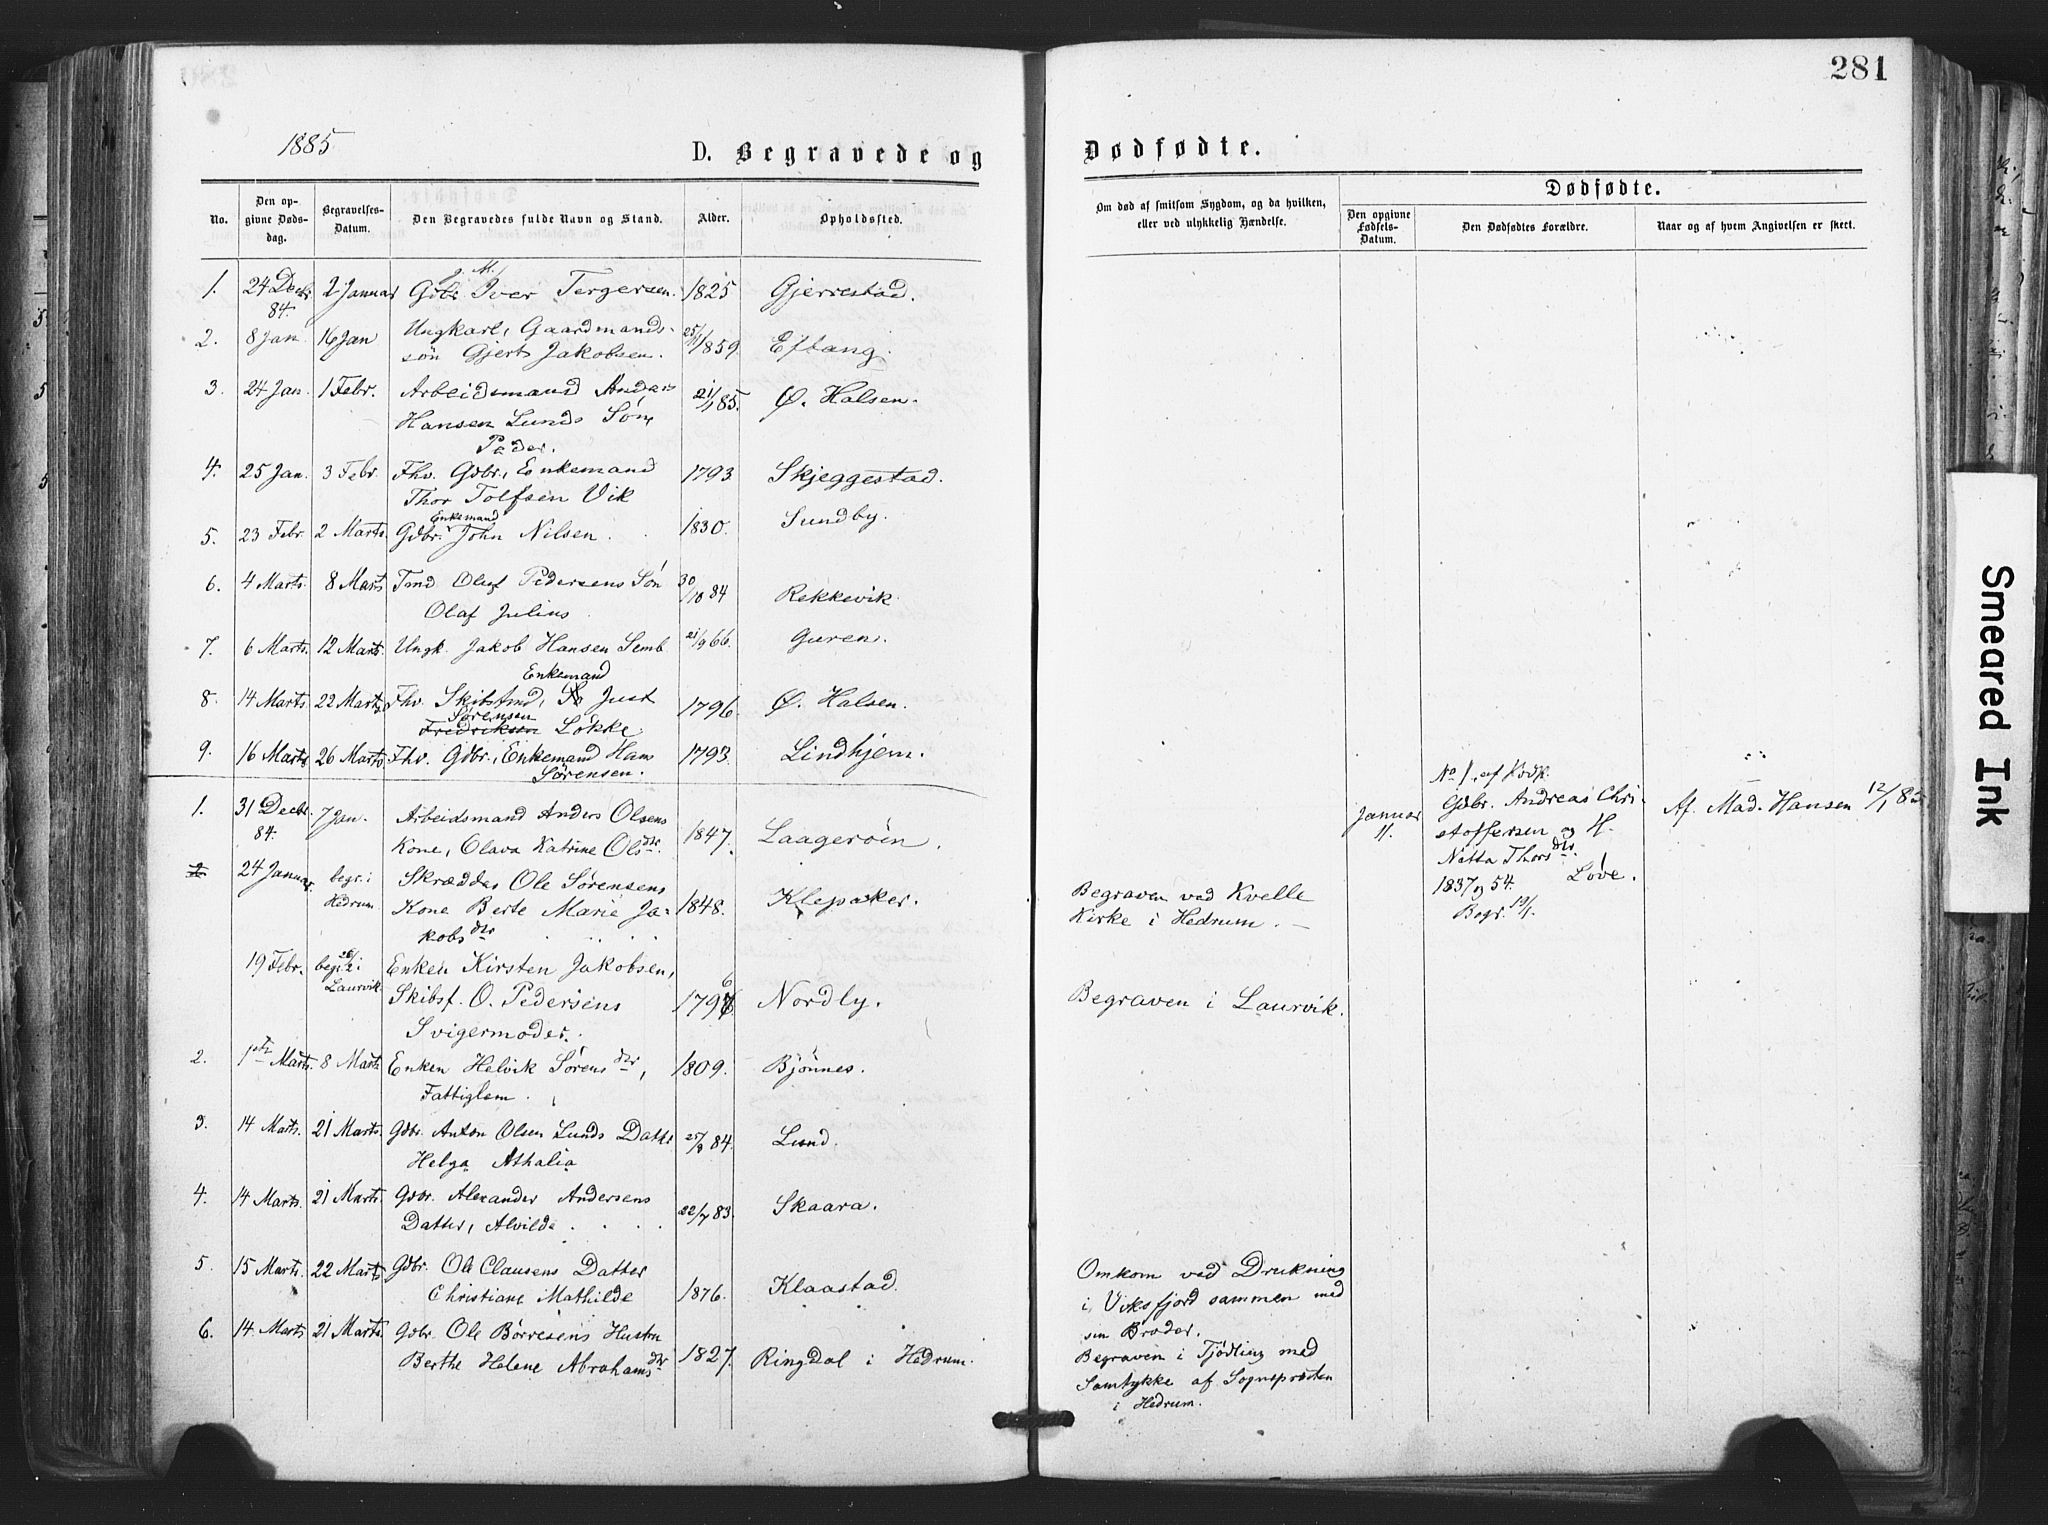 281
1885
D. Begravede og Dødfødte.
No.
Den opgivne Dødsdag.
Begravelses-Datum.
Den Begravedes fulde Navn og Stand.
Alder.
Opholdssted.
Om død af smitsom Sygdom, og da hvilken,
eller ved ulykkelig Hændelse.
Dødfødte.
Den opgivne Fødsels-Datum.
Den Dødfødtes Forældre.
Naar og af hvem Angivelsen er skeet.
1. 24 Decbr 84. 2 Januar Gdbr. Iver Tergersen. 1825 Gjerrestad.
2. 8 Jan 16 Jan Ungkarl, Gaardmands-
søn Gjert Jakobsen. 1859. Eftang.
3. 24 Jan. 1 Febr. Arbeidsmand Anders 21/1 85. Ø. Halsen.
Hansen Lunds Søn,
Peder.
4. 25 Jan. 3 Febr. Fhv. Gdbr., Enkemand 1793. Skjeggestad.
Thor Tolfsen Vik
5. 23 Febr. 2 Marts. Gdbr. Enkemand John Nilsen. 1830. Sundby.
6. 4 Marts. 8 Marts Tmd Oluf Pedersens Søn 30/10 84 Rekkevik.
Olaf Julius
7. 6 Marts. 12 Marts. Ungk. Jakob Hansen Semb 21/9 66. Guren.
Enkemand
8. 14 Marts. 22 Marts Fhv. Skibstmd, Just 1796. Ø. Halsen.
Sørensen
Fredriksen Løkke
9. 16 Marts 26 Marts Fhv. Gdbr., Enkemand Hans 1793. Lindhjem.
Sørensen.
1. 31 Decbr 84. 7 Jan. Arbeidsmand Anders Olsens 1847. Laagerøin.
Kone, Olava Katrine Olsdtr.
2 24 Januar. begr. i Hedrum. Skrædder Ole Sørensens
Kone Berte Marie Ja- 1848. Klepaker. Begraven ved Kvelle
kobsdtr Kirke i Hedrum. -
19 Febr. begr. i Laurvik. Enken Kirsten Jakobsen,
Skibsf. O. Pedersens 1796 Nordby. Begraven i Laurvik.
Svigermoder.
2. 1ste Marts. 8 Marts Enken Helvik Sørensdtr, 1809. Bjønnes.
Fattiglem.
3. 14 Marts. 21 Marts. Gdbr. Anton Olsen Lunds Datter 25/8 84. Lund.
Helga Athalia
4. 14 Marts. 21 Marts. Gdbr. Alexander Andersens
Datter, Alvilde 22/7 83. Skaara.
5. 15 Marts. 22 Marts Gdbr. Ole Clausens Datter
Christiane Mathilde 1876. Klaastad. Omkom ved Drukning
i Viksfjord sammen med
sin Broder.
6. 14 Marts. 21 Marts. Gdbr. Ole Børresens Hustru
Berthe Helene Abrahamsdtr 1827. Ringdal i Hedrum. Begraven i Tjødling med
Samtykke af Sognepræsten
i Hedrum.
Januar 11.
No 1, af Kvdk.
Gdbr. Andreas Chri-
stoffersen og H.
Netta Thorsdtr.
1837 og 54. Løve.
Begr. 19/1.
Af Mad. Hansen 12/1 85
Smeared Ink